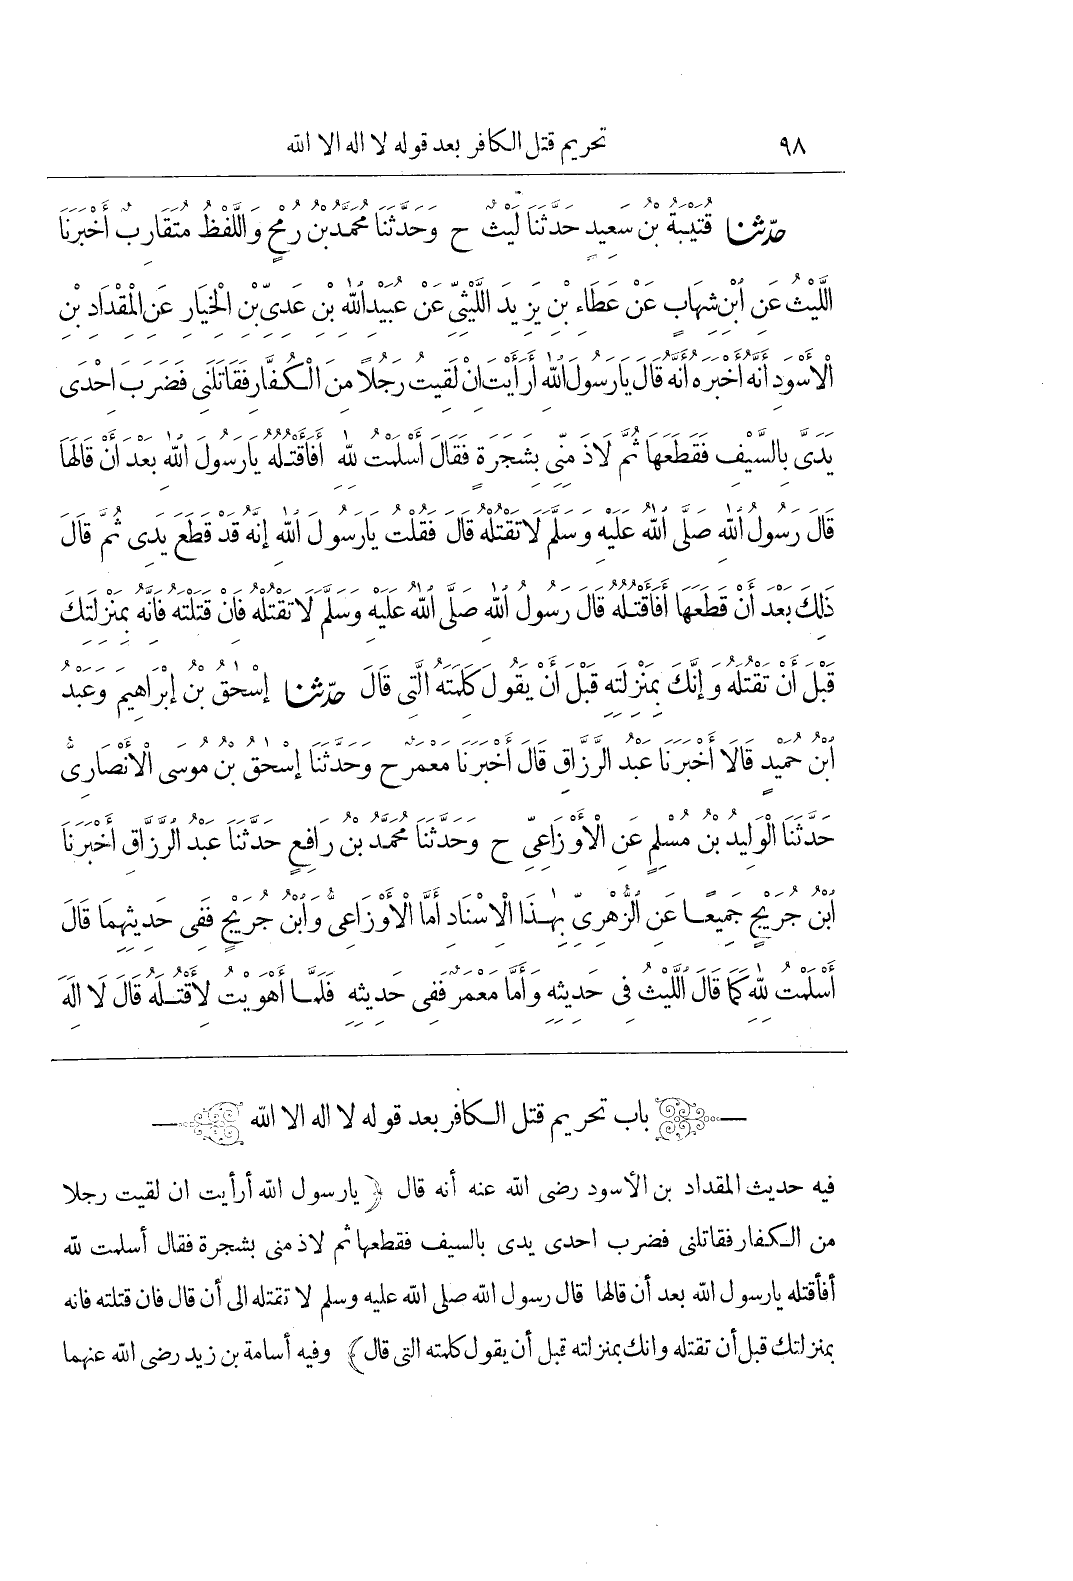 ٩٨ تحريم قتل الكافر بعد قوله لا اله الا الله
حَدَّثَنَا قُتَيْبَةُ بْنُ سَعِيدٍ حَدَّثَنَا لَيْثٌ ح وَحَدَّثَنَا مُحَمَّدُ بْنُ رُمْحٍ وَاللَّفْظُ مُتَقَارِبٌ أَخْبَرَنَا
اللَّيْثُ عَنِ ابْنِ شِهَابٍ عَنْ عَطَاءِ بْنِ يَزِيدَ اللَّيْثِيِّ عَنْ عُبَيْدِ اللهِ بْنِ عَدِيِّ بْنِ الْخِيَارِ عَنِ الْمِقْدَادِ بْنِ
الْأَسْوَدِ أَنَّهُ أَخْبَرَهُ أَنَّهُ قَالَ يَارَسُولَ اللهِ أَرَأَيْتَ إِنْ لَقِيتُ رَجُلًا مِنَ الْكُفَّارِ فَقَاتَلَنِي فَضَرَبَ إِحْدَى
يَدَيَّ بِالسَّيْفِ فَقَطَعَهَا ثُمَّ لَاذَ مِنِّي بِشَجَرَةٍ فَقَالَ أَسْلَمْتُ لِلهِ أَفَأَقْتُلُهُ يَارَسُولَ اللهِ بَعْدَ أَنْ قَالَهَا
قَالَ رَسُولُ اللهِ صَلَّى اللهُ عَلَيْهِ وَسَلَّمَ لَا تَقْتُلْهُ قَالَ فَقُلْتُ يَارَسُولَ اللهِ إِنَّهُ قَدْ قَطَعَ يَدِي ثُمَّ قَالَ
ذَلِكَ بَعْدَ أَنْ قَطَعَهَا أَفَأَقْتُلُهُ قَالَ رَسُولُ اللهِ صَلَّى اللهُ عَلَيْهِ وَسَلَّمَ لَا تَقْتُلْهُ فَإِنْ قَتَلْتَهُ فَإِنَّهُ بِمَنْزِلَتِكَ
قَبْلَ أَنْ تَقْتُلَهُ وَإِنَّكَ بِمَنْزِلَتِهِ قَبْلَ أَنْ يَقُولَ كَلِمَتَهُ الَّتِي قَالَ حَدَّثَنَا إِسْحٰقُ بْنُ إِبْرَاهِيمَ وَعَبْدُ
ابْنُ حُمَيْدٍ قَالَا أَخْبَرَنَا عَبْدُ الرَّزَّاقِ قَالَ أَخْبَرَنَا مَعْمَرٌ ح وَحَدَّثَنَا إِسْحٰقُ بْنُ مُوسَى الْأَنْصَارِيُّ
حَدَّثَنَا الْوَلِيدُ بْنُ مُسْلِمٍ عَنِ الْأَوْزَاعِيِّ ح وَحَدَّثَنَا مُحَمَّدُ بْنُ رَافِعٍ حَدَّثَنَا عَبْدُ الرَّزَّاقِ أَخْبَرَنَا
ابْنُ جُرَيْجٍ جَمِيعًا عَنِ الزُّهْرِيِّ بِهٰذَا الْإِسْنَادِ أَمَّا الْأَوْزَاعِيُّ وَابْنُ جُرَيْجٍ فَفِي حَدِيثِهِمَا قَالَ
أَسْلَمْتُ لِلهِ كَمَا قَالَ اللَّيْثُ فِي حَدِيثِهِ وَأَمَّا مَعْمَرٌ فَفِي حَدِيثِهِ فَلَمَّا أَهْوَيْتُ لِأَقْتُلَهُ قَالَ لَا إِلَهَ
باب تحريم قتل الكافر بعد قوله لا اله الا الله
فيه حديث المقداد بن الأسود رضى الله عنه أنه قال ﴿يارسول الله أرأيت ان لقيت رجلا
من الكفار فقاتلنى فضرب احدى يدى بالسيف فقطعها ثم لاذ منى بشجرة فقال أسلمت لله
أفأقتله يارسول الله بعد أن قالها قال رسول الله صلى الله عليه وسلم لا تقتله الى أن قال فان قتلته فانه
بمنزلتك قبل أن تقتله وانك بمنزلته قبل أن يقول كلمته التى قال﴾ وفيه أسامة بن زيد رضى الله عنهما